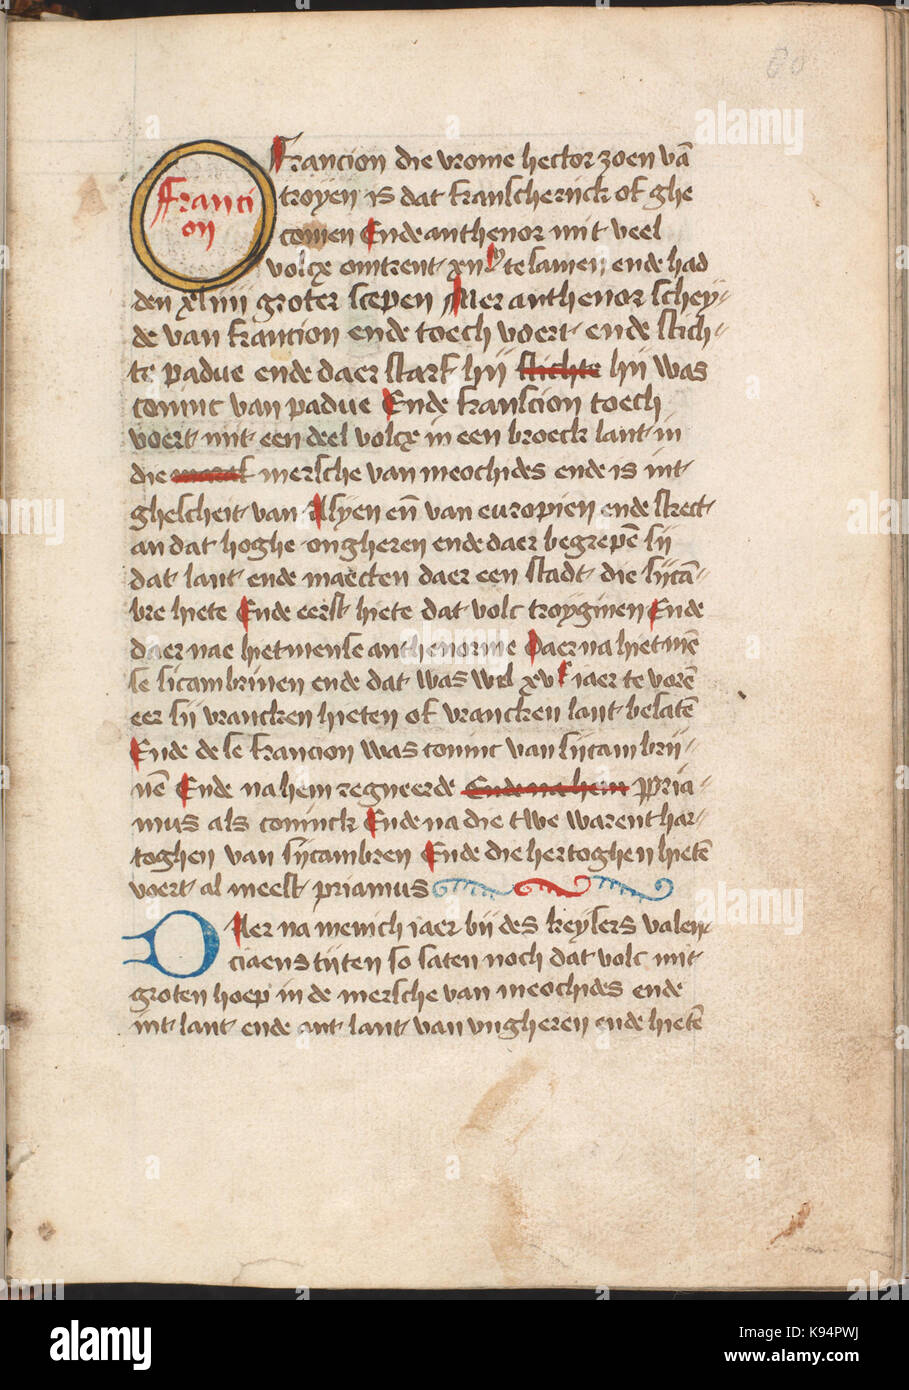 60
Franci
on
Francion die vrome hector zoen vā
troyen is dat franscherijck of ghe
comen Ende anthenor mit veel
volcx omtrent xijᵐ te samen ende had
den xliiij groter scepen Mer anthenor schey-
de van francion ende toech voert ende stich-
te padue ende daer starf hij stichte hij was
coninc van padue Ende franscion toech
voert mit een deel volcx in een broeck lant in
die mersche van meochides ende is int
ghescheit van Asyen eñ van europien ende strect
an dat hoghe ongheren ende daer begrepē sij
dat lant ende maecten daer een stadt die sijcā-
bre hiete Ende eerst hiete dat volc troyginen Ende
daer nae hietmense anthenorine Daer na hietmē
se sicambrinen ende dat was wel xvᶜ iaer te vorē
eer sij vrancken hieten of vrancken lant besatē
Ende dese francion was coninc van sijcambrij-
nē Ende na hem regneerde Ende na hem Pria-
mus als coninck Ende na die twe warent har-
toghen van sijcambren Ende die hertoghen hietē
voert al meest priamus
Daer na menich iaer bij des keysers valen-
ciaens tijten so saten noch dat volc mit
groten hoep in de mersche van meochides ende
int lant ende ant lant van vngheren ende hietē
alamy
Image ID: K94PWJ
www.alamy.com